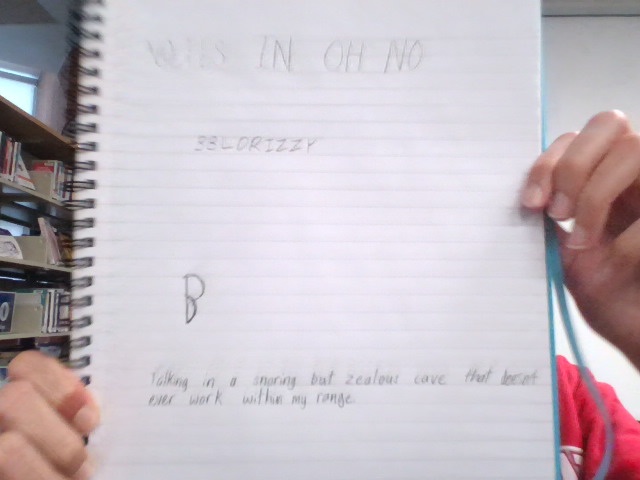 IN OH NO
BBLDRIZZY
B
Talking in a snoring but zealous cave that doesnt
ever work within my range.